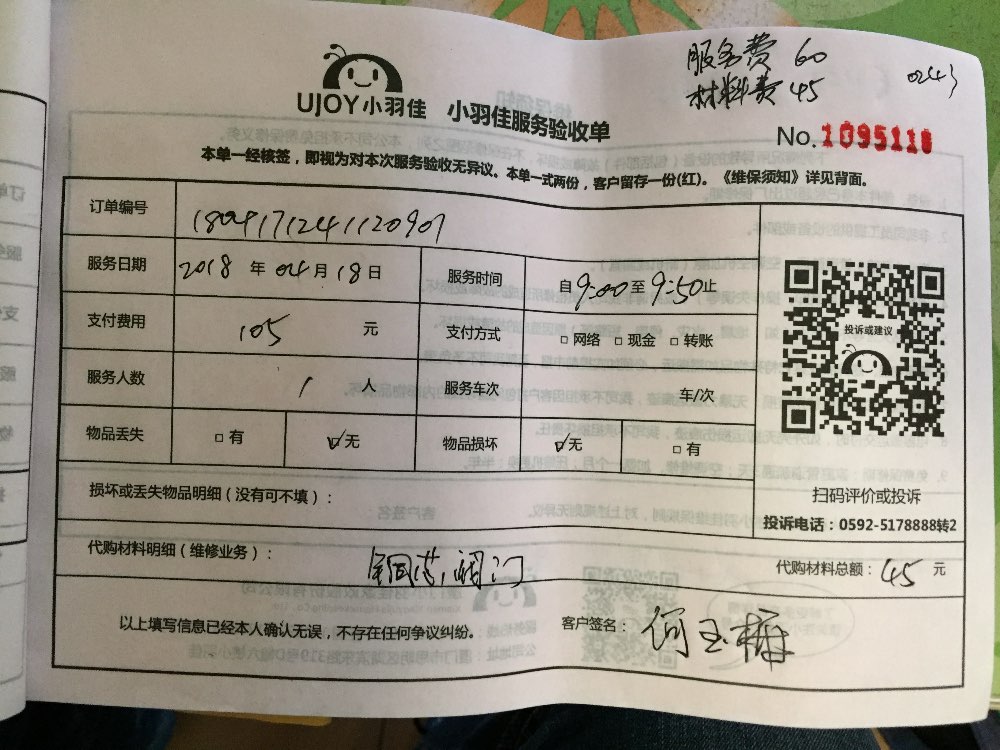 服务费 60
材料费 45
0243
UJOY小羽佳 小羽佳服务验收单
No.1095110
本单一经核签，即视为对本次服务验收无异议。本单一式两份，客户留存一份(红)。《维保须知》详见背面。
订单编号 1804171241120901
服务日期 2018 年 04 月 18 日 服务时间 自 9:00 至 9:50 止
支付费用 105 元 支付方式 □网络 □现金 □转账
服务人数 1 人 服务车次 车/次
物品丢失 □有 ☑无 物品损坏 ☑无 □有
投诉或建议
扫码评价或投诉
投诉电话：0592-5178888转2
损坏或丢失物品明细（没有可不填）：
代购材料明细（维修业务）： 铜芯,阀门 代购材料总额： 45 元
以上填写信息已经本人确认无误，不存在任何争议纠纷。 客户签名： 何玉梅